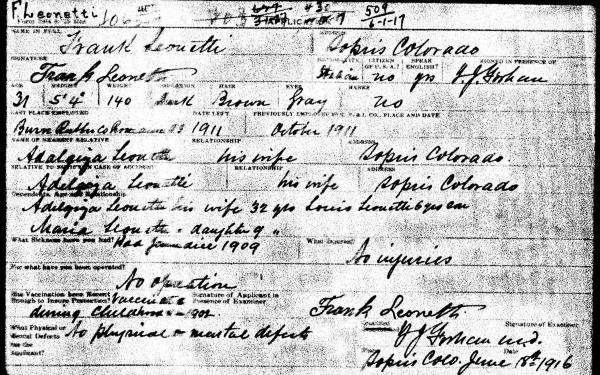 F. Leonetti
509
6-1-17
NAME IN FULL
Frank Leonetti Sopris Colorado
SIGNATURE CITIZEN OF U.S.A.? SPEAK ENGLISH? SIGNED IN PRESENCE OF
Frank Leonetti Italian no yes
AGE HEIGHT WEIGHT COMPLEXION HAIR EYES MARKS
31 5' 4" 140 Dark Brown Gray no
LAST PLACE EMPLOYED DATE LEFT PREVIOUSLY EMPLOYED PLACE AND DATE
1911 October 1911
NAME OF NEAREST RELATIVE RELATIONSHIP ADDRESS
Adalgiza Leonetti his wife Sopris Colorado.
RELATIVE TO NOTIFY IN CASE OF ACCIDENT RELATIONSHIP ADDRESS
Adelgiza Leonetti his wife Sopris Colorado
Dependents, Age and Relationship
Adelgiza Leonetti his wife 32 yrs Louis Leonetti 6 yrs son
Maria Leonetti - daughter 9 "
What Sickness have you had? Had Jaundice 1909 What Injuries?
No injuries
For what have you been operated?
No operation
Has Vaccination been Recent Enough to Insure Protection? Vaccinated Signature of Applicant in Presence of Examiner
during childhood - 1902 Frank Leonetti
What Physical or Mental Defects has the Applicant? No physical or mental defects Signature of Examiner
m.d.
Place Date
Sopris Colo. June 18th 1916